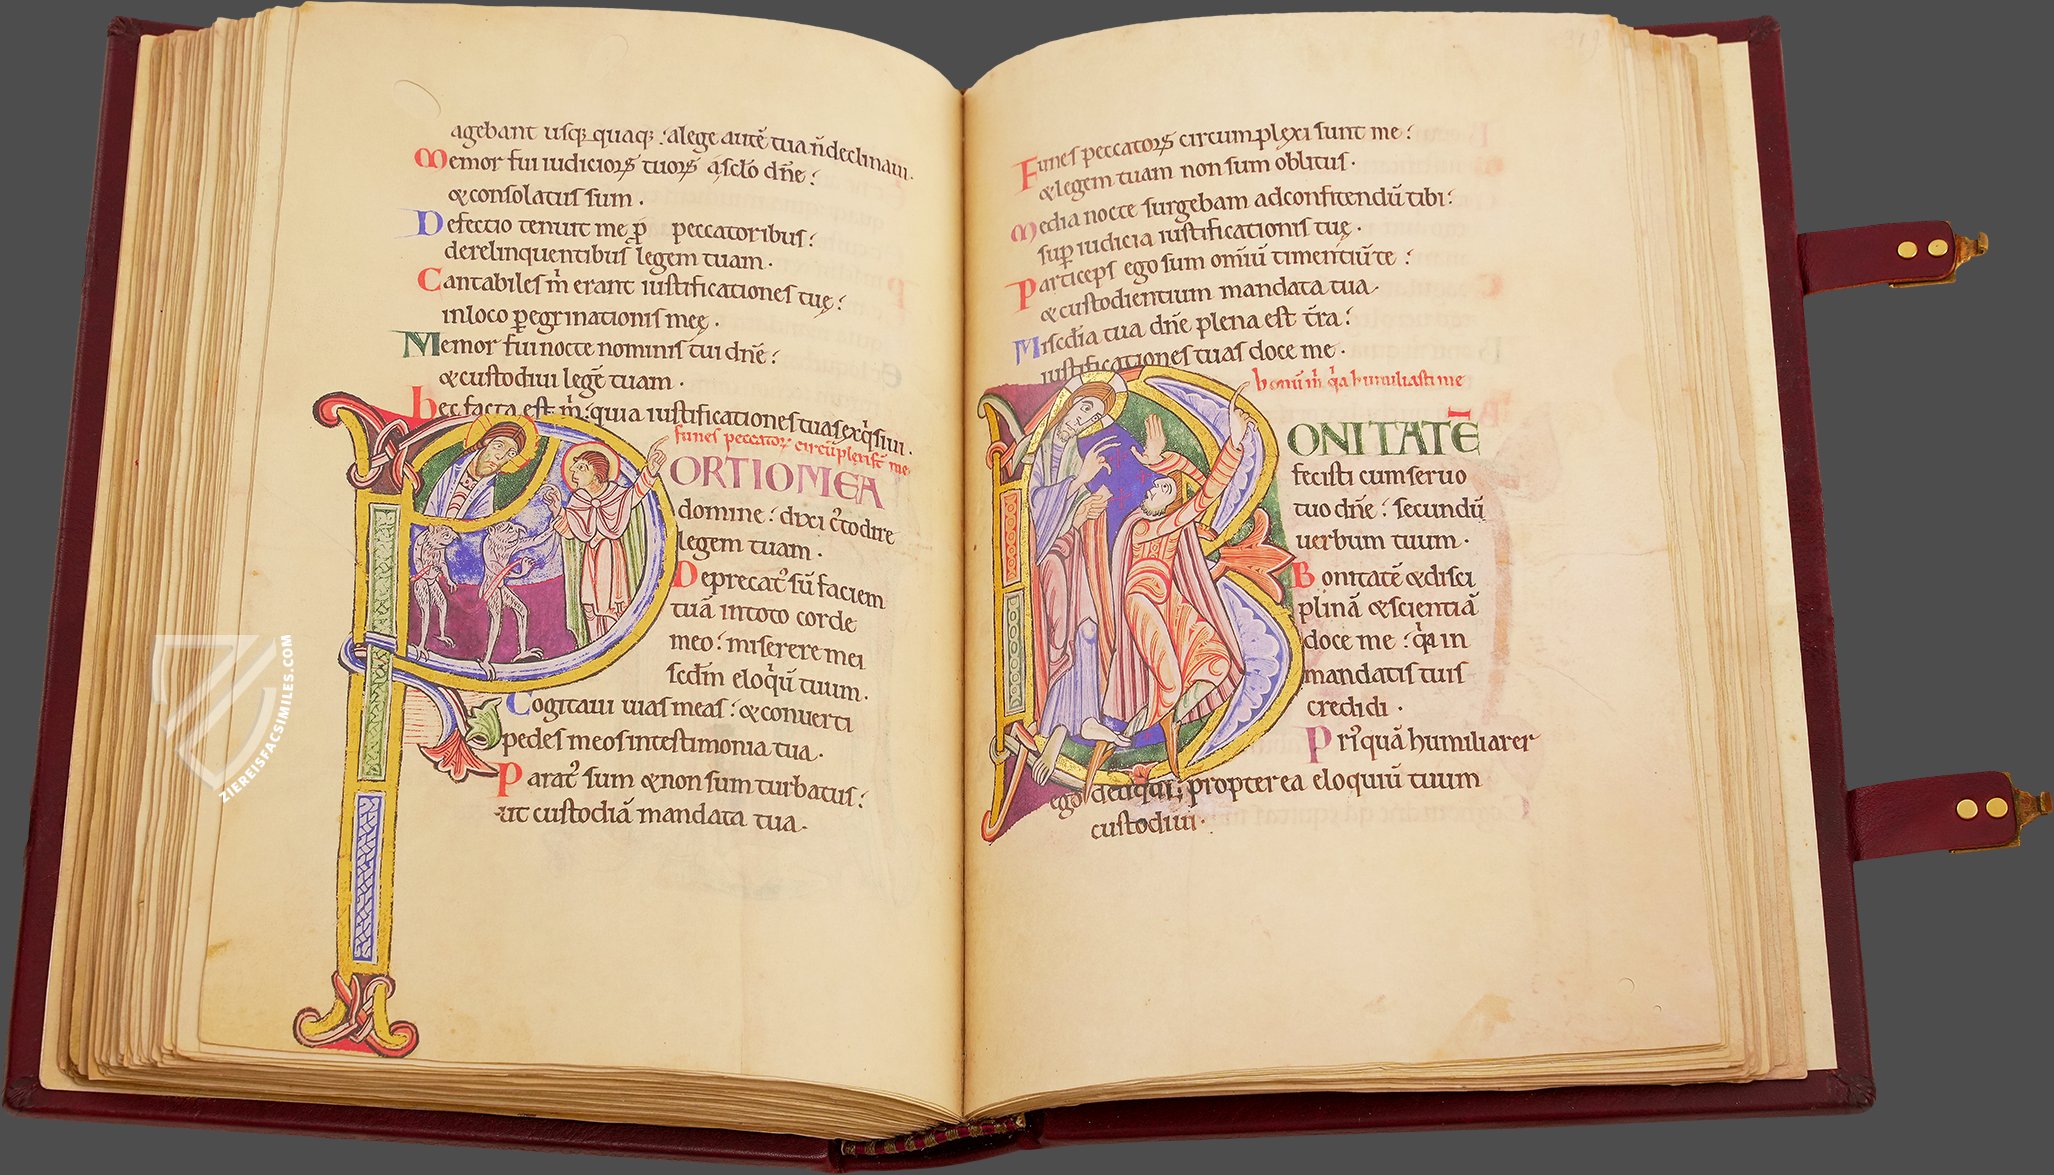 agebant usq; quaq; : alege autē tua n̄ declinaui.
Memor fui iudicioꝝ tuoꝝ asclo dn̄e :
&consolatus sum .
Defectio tenuit me p̄ peccatoribus :
derelinquentibus legem tuam .
Cantabiles m̄ erant iustificationes tuę :
inloco peregrinationis meę .
Memor fui nocte nominis tui dn̄e :
&custodiui legē tuam .
hec facta est m̄ : quia iustificationes tuas exq̄siui .
funes peccatoꝝ circūplexi st̄ me
PORTIO MEA
domine : dixi c̄todire
legem tuam .
Deprecat᾿ sū faciem
tuā intoto corde
meo : miserere mei
scdm̄ eloq̄ū tuum .
Cogitaui uias meas : &conuerti
pedes meos intestimonia tua .
Parat᾿ sum &non sum turbatus :
ut custodiā mandata tua .
Funes peccatoꝝ circumplexi sunt me :
&legem tuam non sum oblitus .
Media nocte surgebam adconfitendū tibi :
sup̄ iudicia iustificationis tuę .
Particeps ego sum omīū timentiū te :
&custodientium mandata tua
Misedīa tua dn̄e plena est t̄ra :
iustificationes tuas doce me .
bonū m̄ q̄a humiliasti me
BONITATĒ
fecisti cum seruo
tuo dn̄e : secundū
uerbum tuum .
Bonitatē &disci
plinā &scientiā
doce me : q̄a in
mandatis tuis
credidi .
Pri᾿quā humiliarer
ego deliqui ; propterea eloquiū tuum
custodiui .
ZIEREISFACSIMILES.COM